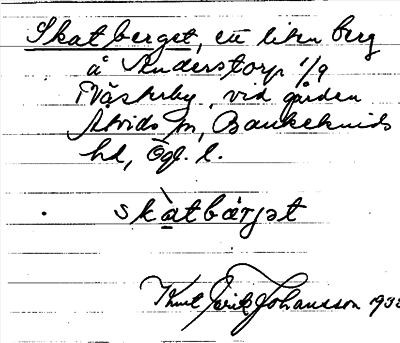 Skatberget, ett litet berg
å Anderstorp 1/9
i Västerby, vid gården
m, Bankekinds
hd, Ögl. l.
skàtbærjət
Knut Erik Johansson